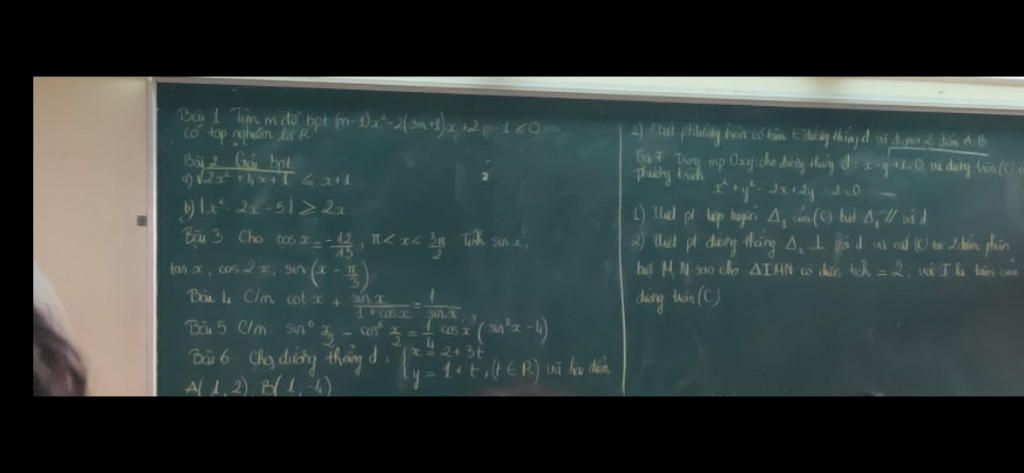 Bài 1 Tìm m để bpt (m-1)x² - 2(3m+1)x + 2m - 1 ≤ 0
có tập nghiệm là R
Bài 2 Giải bpt
a) √(2x² + 4x + 1) ≤ x+1
b) |x² - 2x - 5| ≥ 2x
Bài 3 Cho cos x = -12/13, π < x < 3π/2 Tính sin x,
tan x, cos 2x, sin(x - π/3)
Bài 4 C/m cot x + sin x/(1+cos x) = 1/sin x
Bài 5 C/m sin⁶ x/2 - cos⁶ x/2 = 1/4 cos x (sin² x - 4)
Bài 6 Cho đường thẳng d: { x = 2+3t
y = 1+t, (t ∈ R) và hai điểm
A(1,2), B(1,-4)
2) Viết phương trình có tâm ∈ đường thẳng d và đi qua 2 điểm A, B
Bài 7 Trong mp Oxy cho đường thẳng d: x-y+1=0 và đường tròn (C) có
phương trình
x² + y² - 2x + 2y - 2 = 0
1) Viết pt tiếp tuyến Δ₁ của (C) biết Δ₁ // với d
2) Viết pt đường thẳng Δ₂ ⊥ với d và cắt (C) tại 2 điểm phân
biệt M, N sao cho ΔIMN có diện tích = 2, với I là tâm của
đường tròn (C)